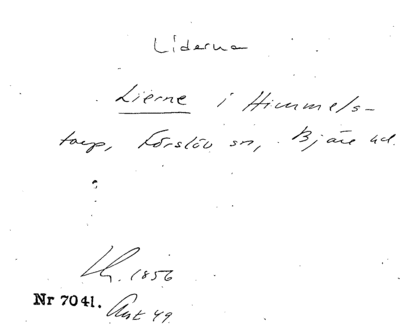 Liderna
Lierne i Himmels-
torp, Förslöv sn, Bjäre hd.
Lh. 1856
Nr 7041. Akt 49